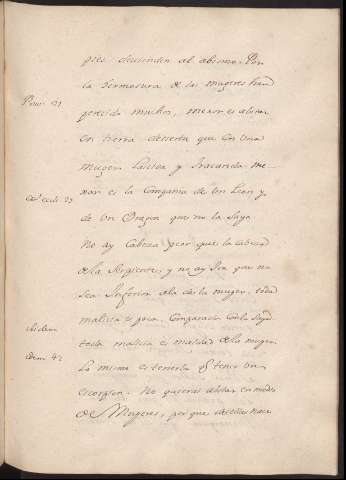 pies decienden al abismo. Por
la hermosura de las mugeres han
Prou. 21
perecido muchos, mexor es abitar
en tierra decierta que con una
muger laxica y iracunda me-
xor es la Compania de un Leon y
Ecli. 25
de un Dragon que no la suya
No ay Cabeza peor que la cabeza
de la Serpiente, y no ay Ira que no
sea Inferior a la de la muger, toda
malicia es poca. Comparada con la suya
toda malicia es maldad de la muger
Lo mismo es tenerla q tener un
Idem 42
escorpion. No quieras abitar en medio
de Mugeres, por que de ellas nace